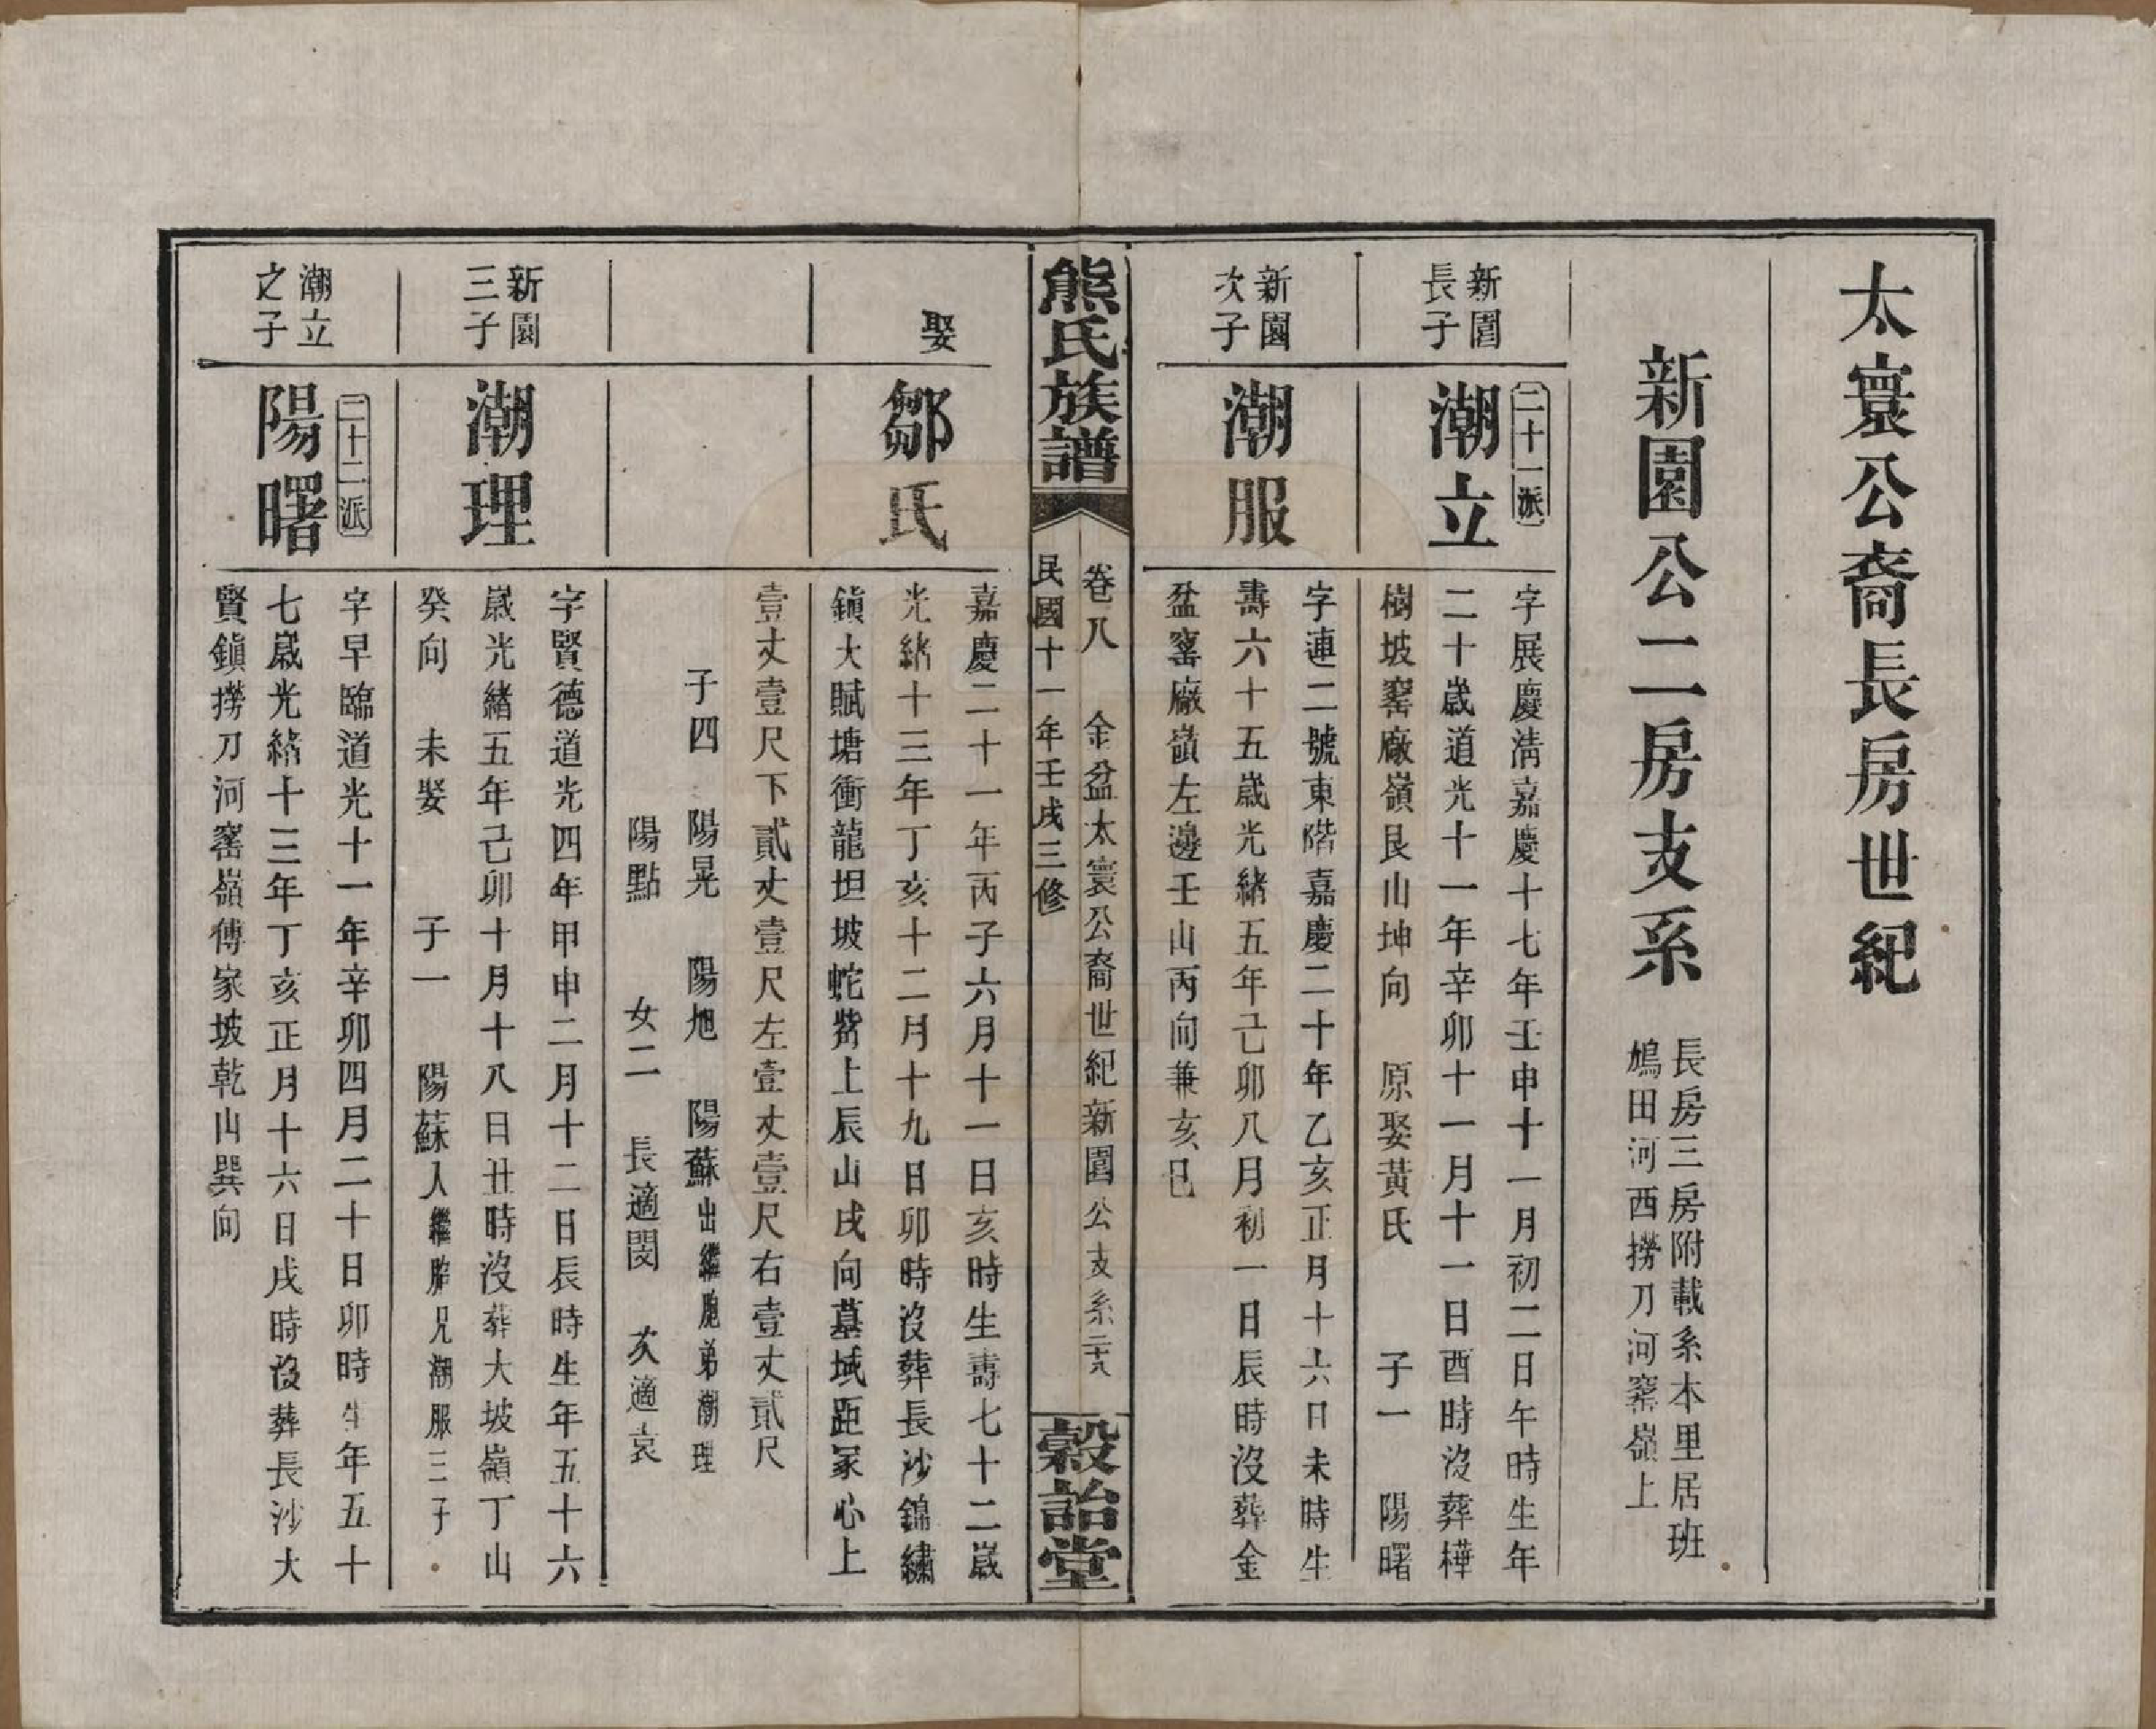 太寰公裔長房世紀
新園公二房支系
長房三房附載系本里居班
鳩田河西撈刀河窰嶺上
新園
長子
二十一派
潮立
字展慶清嘉慶十七年壬申十一月初二日午時生年
二十歲道光十一年辛卯十一月十一日酉時沒葬樺
樹坡窰廠嶺艮山坤向 原娶黃氏 子一 陽曙
新園
次子
潮服
字連二號東階嘉慶二十年乙亥正月十六日未時生
壽六十五歲光緒五年己卯八月初一日辰時沒葬金
盆窰廠嶺左邊壬山丙向兼亥巳
熊氏族譜
卷八 金盆太寰公裔世紀新園公支系二十八
民國十一年壬戌三修
穀詒堂
娶
鄒氏
嘉慶二十一年丙子六月十一日亥時生壽七十二歲
光緒十三年丁亥十二月十九日卯時沒葬長沙錦繡
鎮大賦塘衝龍坦坡蛇嘴上辰山戌向墓域距冢心上
壹丈壹尺下貳丈壹尺左壹丈壹尺右壹丈貳尺
子四 陽晃 陽旭 陽蘇出繼胞弟潮理
陽點 女二 長適閔 次適袁
新園
三子
潮理
字賢德道光四年甲申二月十二日辰時生年五十六
歲光緒五年己卯十月十八日丑時沒葬大坡嶺丁山
癸向 未娶 子一 陽蘇入繼胞兄潮服三子
潮立
之子
二十二派
陽曙
字早臨道光十一年辛卯四月二十日卯時生年五十
七歲光緒十三年丁亥正月十六日戌時沒葬長沙大
賢鎮撈刀河窰嶺傅家坡乾山巽向